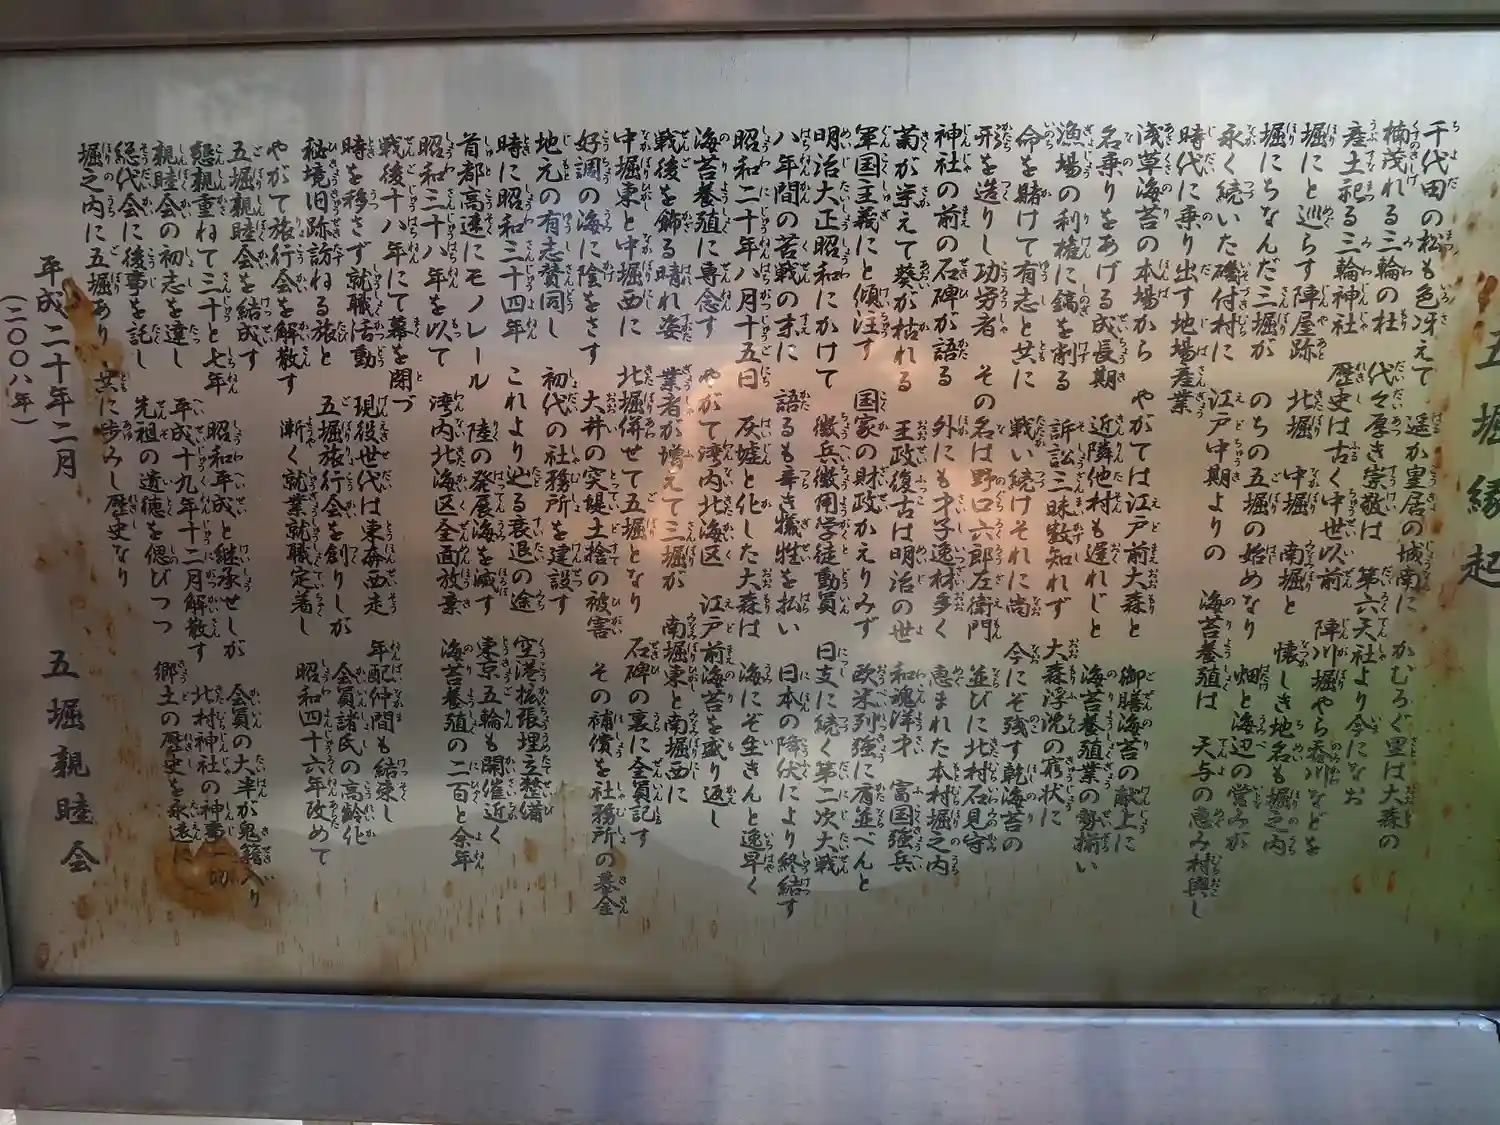 五堀縁起
千代田の松も色冴えて　遥か皇居の城南に　かむろぐ里は大森の
楠茂れる三輪の杜　代々厚き崇敬は　第六天社より今になお
産土祀る三輪神社　歴史は古く中世以前　陣川堀やら呑川などを
堀にと巡らす陣屋跡　北堀　中堀　南堀と　懐しき地名も堀之内
堀にちなんだ三堀が　のちの五堀の始めなり　畑と海辺の営みが
永く続いた磯付村に　江戸中期よりの　海苔養殖は　天与の恵み村興し
時代に乗り出す地場産業
浅草海苔の本場から　やがては江戸前大森と　御膳海苔の献上に
名乗りをあげる成長期　近隣他村も遅れじと　海苔養殖業の勢揃い
漁場の利権に鎬を削る　訴訟三昧数知れず　大森浮沈の窮状に
命を賭けて有志と共に　戦い続けそれに尚　今にぞ残す乾海苔の
形を造りし功労者　その名は野口六郎左衛門　並びに北村石見守
神社の前の石碑が語る　外にも才子逸材多く　恵まれた本村堀之内
菊が栄えて葵が枯れる　王政復古は明治の世　和魂洋才　富国強兵
軍国主義にと傾注す　国家の財政かえりみず　欧米列強に肩並べんと
明治大正昭和にかけて　徴兵徴用学徒動員　日支に続く第二次大戦
八年間の苦戦の末に　語るも辛き犠牲を払い　日本の降伏により終結す
昭和二十年八月十五日　灰墟と化した大森は　海にぞ生きんと逸早く
海苔養殖に専念す　やがて湾内北海区　江戸前海苔を盛り返し
戦後を飾る晴れ姿　業者が増えて三堀が　南堀東と南堀西に
中堀東と中堀西に　北堀併せて五堀となり　石碑の裏に全員記す
好調の海に陰をさす　大井の突堤土捨の被害　その補償を社務所の基金
地元の有志賛同し　初代の社務所を建設す
時に昭和三十四年　これより辿る衰退の途　空港拡張埋立整備
首都高速にモノレール　陸の発展海を滅す　東京五輪も開催近く
昭和三十八年を以て　湾内北海区全面放棄　海苔養殖の二百と余年
戦後十八年にて幕を閉づ
時を移さず就職活動　現役世代は東奔西走　年配仲間も結束し
秘境旧跡訪ねる旅と　五堀旅行会を創りしが　会員諸氏の高齢化
やがて旅行会を解散す　漸く就業就職定着し　昭和四十六年改めて
五堀親睦会を結成す
懇親重ねて三十と七年　昭和平成と継承せしが　会員の大半が鬼籍入り
親睦会の初志を達し　平成十九年十二月解散す　北村神社の神事一切
総代会に後事を託し　先祖の遺徳を偲びつつ　郷土の歴史を永遠に
堀之内に五堀あり　共に歩みし歴史なり
平成二十年二月　五堀親睦会
(二〇〇八年)